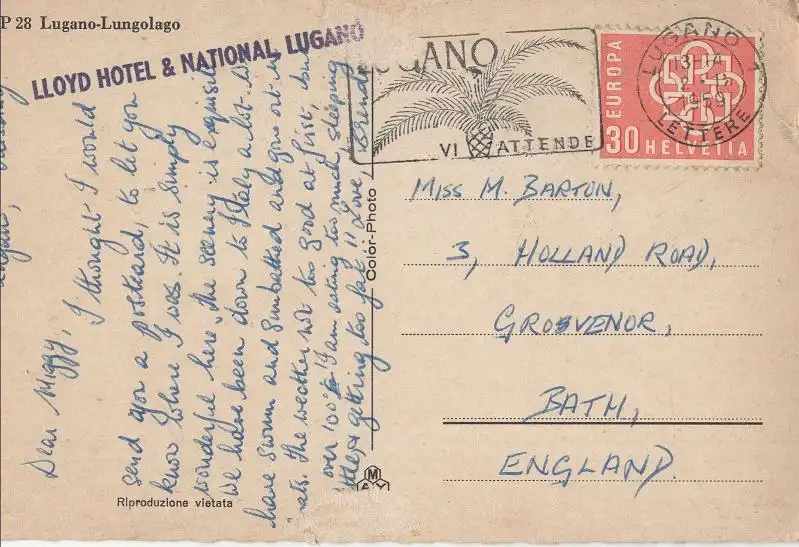 P 28 Lugano-Lungolago
LLOYD HOTEL & NATIONAL, LUGANO
Lugano,
Dear Miggy,
I thought I would
send you a postcard, to let you
know where I was. It is simply
wonderful here, the scenery is exquisite
We have been down to Italy a lot. We
have swum and sunbathed and gone out in
The weather not too good at first, but
over 100°! I am eating too much, sleeping
getting too fat!! Love, Brenda
Riproduzione vietata
Color-Photo
M
LUGANO
VI ATTENDE
LUGANO 1
13-14
1959
LETTERE
EUROPA
30 HELVETIA
MISS M. BARTON,
3, HOLLAND ROAD,
GROSVENOR,
BATH,
ENGLAND.